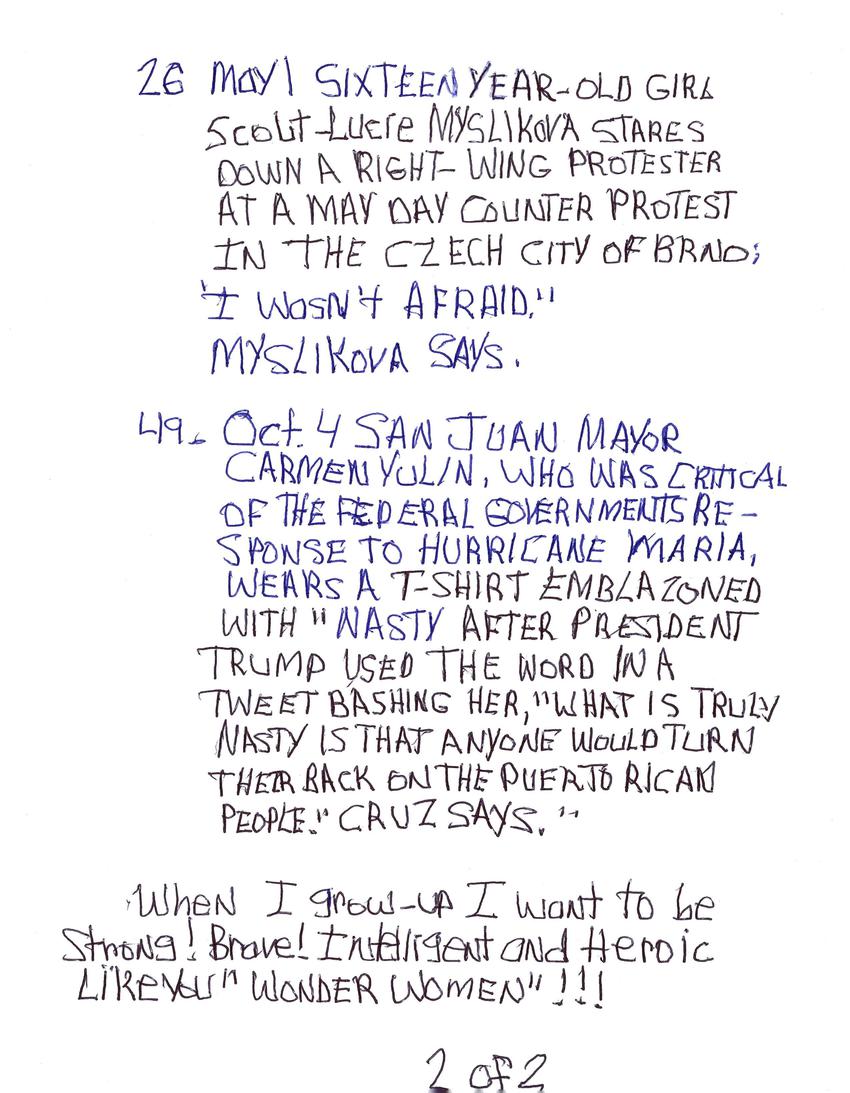 26 May 1 SIXTEEN YEAR-OLD GIRL
Scout-Lucie MYSLIKOVA STARES
DOWN A RIGHT-WING PROTESTER
AT A MAY DAY COUNTER PROTEST
IN THE CZECH CITY OF BRNO;
"I WasN't AFRAID."
MYSLIKOVA SAYS.
49. Oct. 4 SAN JUAN MAYOR
CARMEN YULIN, WHO WAS CRITICAL
OF THE FEDERAL GOVERNMENTS RE-
SPONSE TO HURRICANE MARIA,
WEARS A T-SHIRT EMBLAZONED
WITH "NASTY AFTER PRESIDENT
TRUMP USED THE WORD IN A
TWEET BASHING HER, "WHAT IS TRULY
NASTY IS THAT ANYONE WOULD TURN
THEIR BACK ON THE PUERTO RICAN
PEOPLE." CRUZ SAYS."
When I grow-up I want to be
Strong! Brave! Intelligent and Heroic
Like You " WONDER WOMEN" !!!
2 of 2